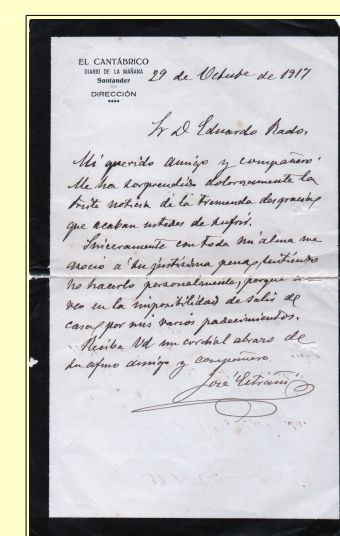 EL CANTÁBRICO
DIARIO DE LA MAÑANA
Santander
DIRECCIÓN
29 de Octubre de 1917
Sr D Eduardo Rado,
Mi querido amigo y compañero:
Me ha sorprendido dolorosamente la
triste noticia de la tremenda desgracia
que acaban ustedes de sufrir.
Sinceramente con toda mi alma me
asocio a su justísima pena, sintiendo
no hacerlo personalmente, porque
veo en la imposibilidad de salir de
casa, por mis varios padecimientos.
Reciba Vd un cordial abrazo de
su afmo amigo y compañero
José Estrañi